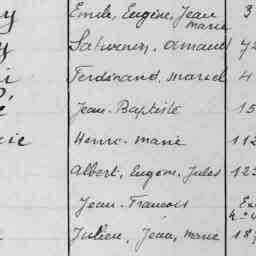 y Emile, Eugène, Jean 3
Marie
y Saturnin, Amand 72
i Ferdinand, Marcel 4
é Jean-Baptiste 15
rie Henri-Marie 112
Albert, Eugène, Jules 123
Jean-Francois
Julien, Jean, Marie 187